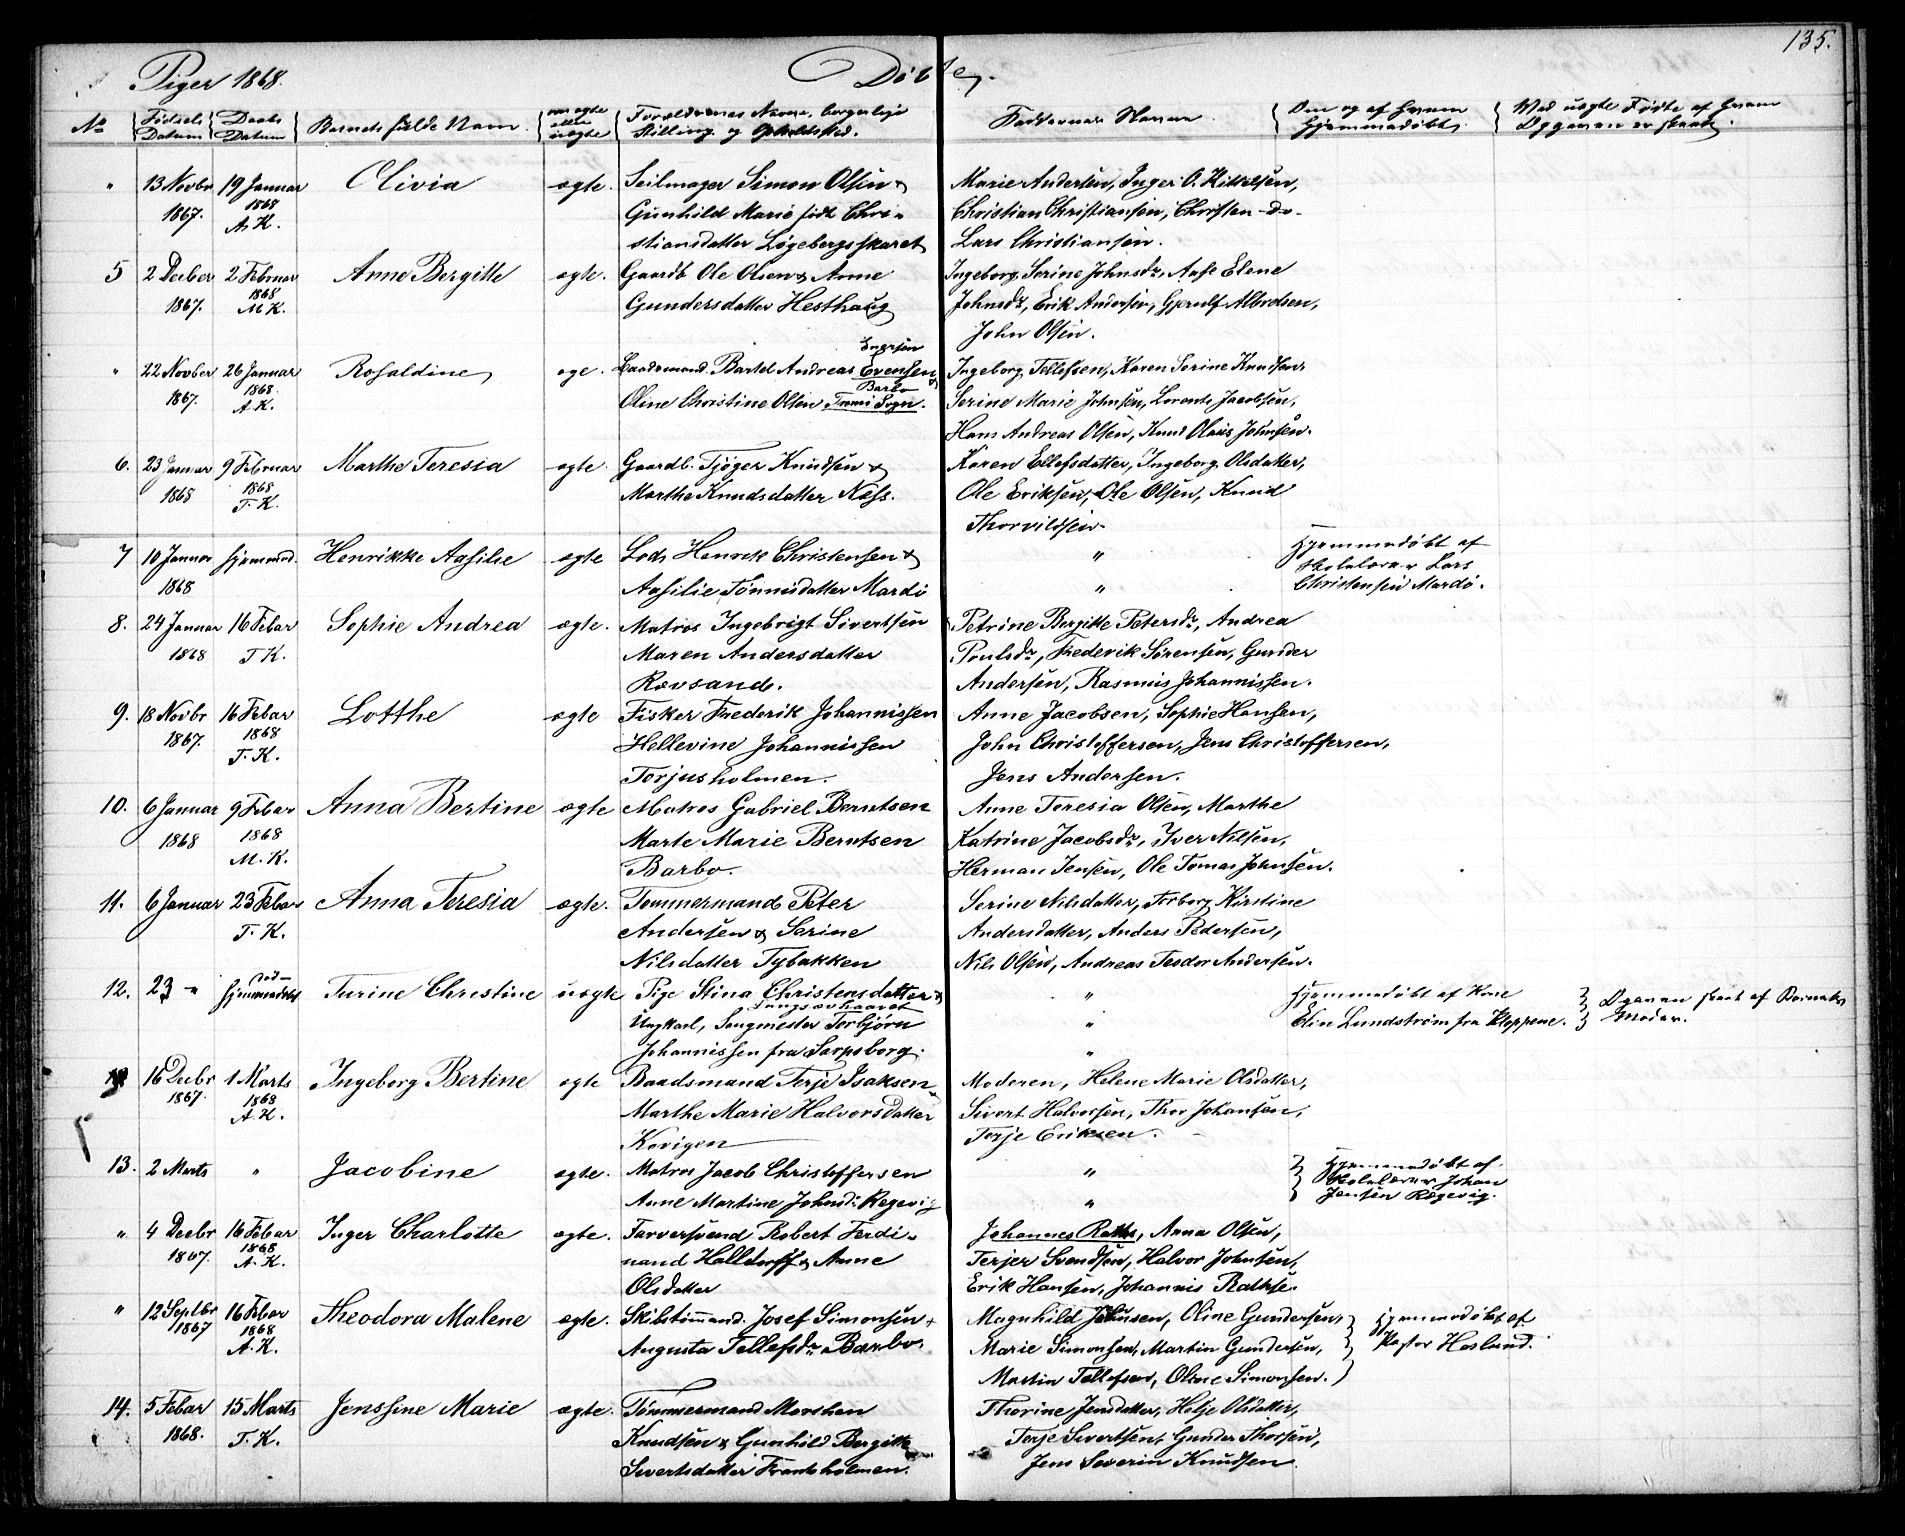 135.
Piger 1868. Døbte.
No Fødsels Datum Daabs Datum Barnets fulde Navn. om ægte eller uægte Forældrenes Navne, borgerlige Stilling og Opholdsted. Faddernes Navne. Om og af hvem Hjemmedøbt. Med uægte Fødte af hvem Opgaven er skeet.
" 13 Novbr 19 Januar Olivia ægte. Seilmager Simon Olsen & Marie Andersen, Inger O. Kittelsen,
1867. 1868 Gunhild Marie født Chri- Christian Christiansen, Christen - do -
A. K. stiansdatter Løgebergsskaret Lars Christiansen.
5 2 Decber 2 Februar Anne Bergitte ægte. Gaardb Ole Olsen & Anne Ingeborg Serine Johnsdr, Aase Elene
1867. 1868 Gundersdatter Hesthaug Johnsdr, Erik Andersen, Gjerulf Albretsen,
M K. John Olsen.
Enersen
" 22 Novber 26 Januar Rosaldine ægte. Baadsmand Bartel Andreas Evensen & Ingeborg Tellefsen, Karen Serine Knudsen,
1867. 1868. Barbo
A. K. Oline Christine Olsen Tromø Sogn. Serine Marie Johnsen, Lorents Jacobsen,
Hans Andreas Olsen, Knud Olaus Johnsen.
6. 23 Januar 9 Februar Marthe Teresia ægte. Gaardb. Tjøger Knudsen & Karen Ellefsdatter, Ingeborg Olsdatter,
1868 1868 Marthe Knudsdatter Næss. Ole Eriksen, Ole Olsen, Knud
T. K. Thorvildsen
7 10 Januar Hjemmed. Henrikke Aasilie ægte Lods Henrik Christensen & " Hjemmedøbt af
1868 Aasilie Tønnisdatter Mardø " Skolelærer Lars
Christensen Mardø.
8. 24 Januar 16 Febar Sophie Andrea ægte. Matros Ingebrigt Sivertsen Petrine Bergitte Petersdr, Andrea
1868 T K. Maren Andersdatter Poulsdr, Frederik Sørensen, Gunder
Revsand. Andersen, Rasmus Johannissen.
9. 18 Novbr 16 Febar Lotthe ægte Fisker Frederik Johannissen Anne Jacobsen, Sophie Hansen,
1867. 1868 Hellevine Johannissen John Christoffersen, Jens Christoffersen,
T. K. Torjusholmen. Jens Andersen.
10. 6 Januar 9 Febar Anna Bertine ægte Matros Gabriel Berntsen Anne Teresia Olsen, Marthe
1868 1868 Marte Marie Berntsen Katrine Jacobsdr, Iver Nilsen,
M. K. Barbo. Herman Jensen, Ole Tomas Johnsen.
11. 6 Januar 23 Febar Anna Teresia ægte. Tømmermand Peter Serine Nilsdatter, Torborg Kirstine
T. K. Andersen & Serine Andersdatter, Anders Pedersen,
Nilsdatter Tybakken Nils Olsen, Andreas Teodor Andersen.
12. 23 - " Hjemmedøbt Turine Christine uægte Pige Stina Christensdatter & " Hjemmedøbt af Kone Opgaven skeet af Barnets
Ungkarl, Sangmester Torbjørn " Elin Lundstrøm fra Kloppene. Moder.
Johannissen fra Sarpsborg. "
16 Decbr 1 Marts Ingeborg Bertine ægte Baadsmand Terje Isaksen Moderen, Helene Marie Olsdatter,
1867. 1868 Marthe Marie Halvorsdatter Sivert Halvorsen, Thor Johansen,
A. K. Kovigen Terje Eriksen.
13. 2 Marts " Jacobine ægte. Matros Jacob Christoffersen " Hjemmedøbt af
Anne Martine Johnsdr Regevig " Skolelærer Johan
Jensen Rægevig.
" 4 Decbr 16 Febar Inger Charlotte ægte. Farversvend Robert Ferdi- Johannes Raths, Anna Olsen,
1867. 1868 nand Halldorff & Anne Terjer Svendsen, Halvor Johnsen,
A. K. Olsdatter Erik Hansen, Johannis Rathse.
" 12 Septbr 16 Febar Theodora Malene ægte. Skibstømmand. Josef Simonsen & Magnhild Johnsen, Oline Gundersen, Hjemmedøbt af
1867 1868 Augusta Tellefsdr Barbo. Marie Simonsen, Martin Gundersen, Pastor Haslund.
A. K. Martin Tellefsen, Oline Simonsen.
14. 5 Febar 15 Marts Jenssine Marie ægte. Tømmermand Morthen Thorine Jensdatter, Helje Olsdatter,
1868. T. K. Knudsen & Gunhild Bergitte Terje Sivertsen, Gunder Thorsen,
Sivertsdatter Frantsholmen. Jens Severin Knudsen.